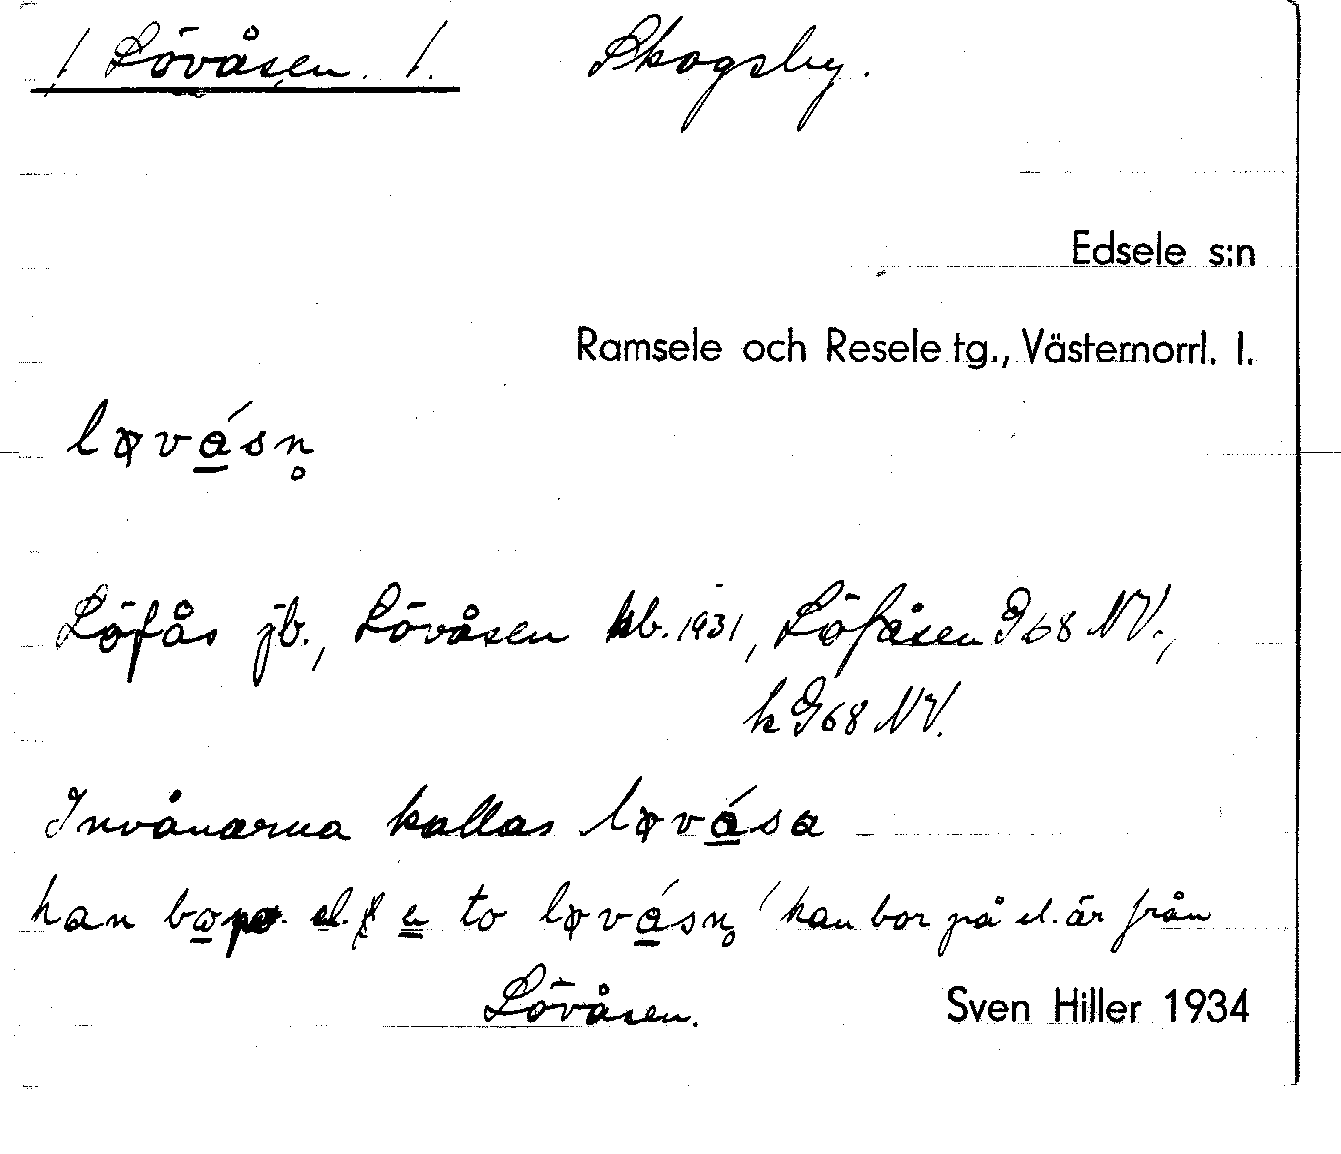 / Lövåsen. /. Skogsby.
Edsele s:n
Ramsele och Resele tg., Västernorrl. l.
løvásn̥
Löfås jb., Lövåsen kb. 1931, Löfåsen G68 NV.,
k G68 NV.
Invånarna kallas løvása
han bo̲ po el. e̳ to løvásn̥ 'han bor på el. är från
Lövåsen.
Sven Hiller 1934